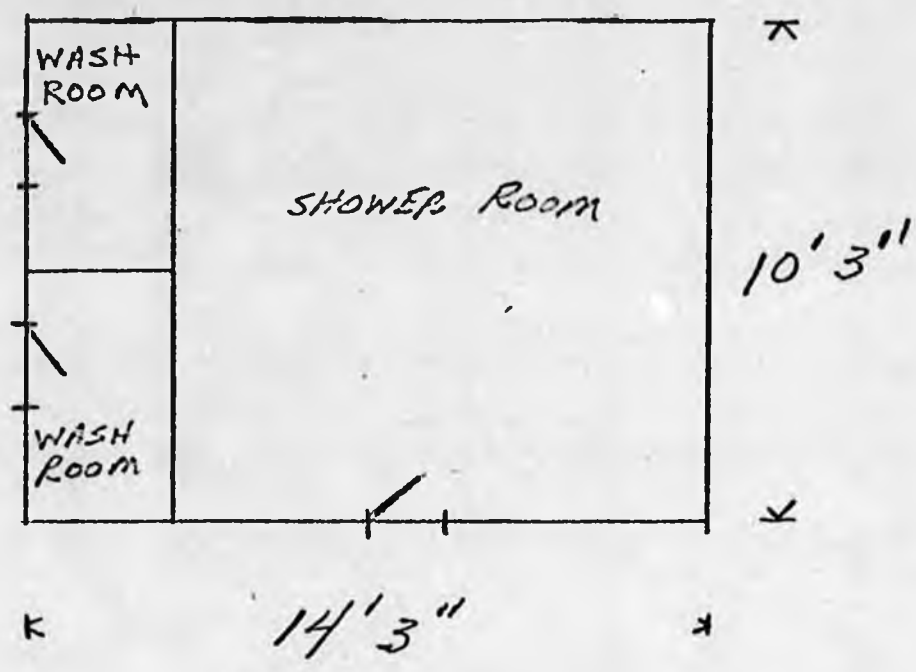 WASH
ROOM
SHOWER ROOM
10' 3"
WASH
ROOM
14' 3"